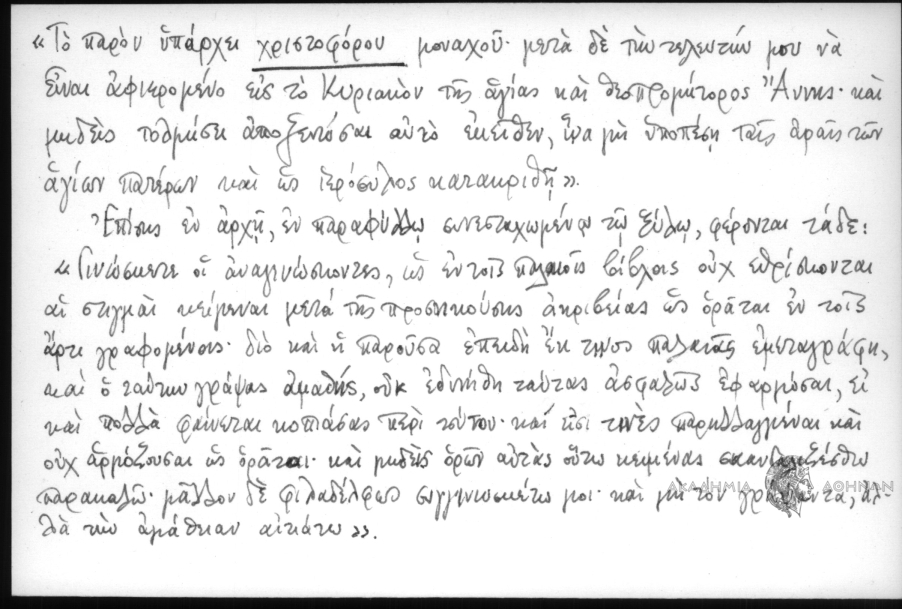 «Τὸ παρὸν ὑπάρχει χριστοφόρου μοναχοῦ· μετὰ δὲ τὴν τελευτήν μου νὰ
εἶναι ἀφιερομένο εἰς τὸ Κυριακὸν τῆς ἁγίας καὶ θεοπρομήτορος Ἄννης· καὶ
μηδεὶς τολμήσει ἀποξενῶσαι αὐτὸ ἐκεῖθεν, ἵνα μὴ ὑποπέσῃ ταῖς ἀραῖς τῶν
ἁγίων πατέρων καὶ ὡς ἱερόσυλος κατακριθῇ».
Ἐπίσης ἐν ἀρχῇ, ἐν παραφύλλῳ συνεσταχωμένῳ τῷ ξύλῳ, φέρονται τάδε:
«Γινώσκετε οἱ ἀναγινώσκοντες, ὡς ἐν τοῖς παλαιοῖς βίβλοις οὐχ εὑρίσκονται
αἱ στιγμαὶ κείμεναι μετά τῆς προσηκούσης ἀκριβείας ὡς ὁρᾶται ἐν τοῖς
ἄρτι γραφομένοις· διὸ καὶ ἡ παροῦσα ἐπειδὴ ἔκ τινος παλαιᾶς ἐμεταγράφη,
καὶ ὁ ταύτην γράψας ἀμαθής, οὐκ ἐδυνήθη ταύτας ἀσφαλῶς ἐφαρμόσαι, εἰ
καὶ πολλὰ φαίνεται κοπιάσας περὶ τούτου· καί εἰσι τινὲς παρηλλαγμέναι καὶ
οὐχ ἁρμόζουσαι ὡς ὁρᾶται· καὶ μηδεὶς ὁρῶν αὐτὰς οὕτω κειμένας σκανδαλιζέσθω
παρακαλῶ· μᾶλλον δὲ φιλαδέλφως συγγινωσκέτω μοι· καὶ μὴ τὸν γράψαντα, ἀλ-
λὰ τὴν ἀμάθειαν αἰτιάτω».
ΑΚΑΔΗΜΙΑ ΑΘΗΝΩΝ